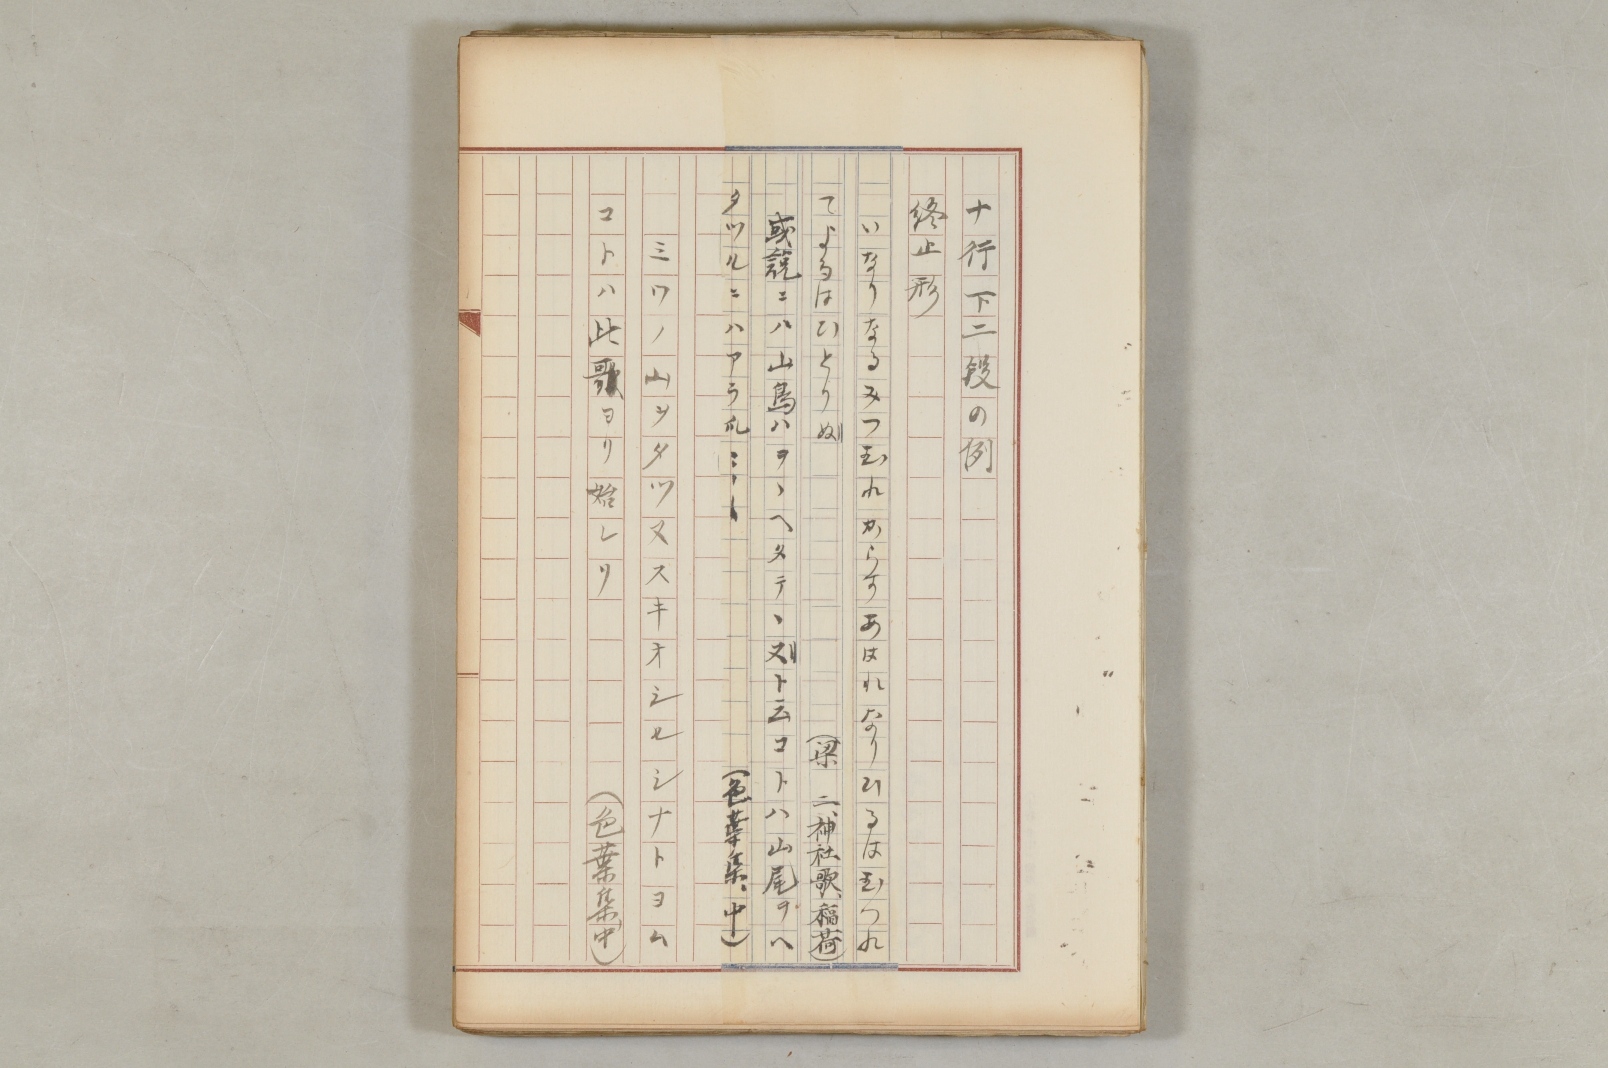 ナ行下二段の例
終止形
いなりなるみつむれからすあはれなりひるはむつれ
てよるはひとりぬ
(梁 二、神社歌、稲荷)
或説ニハ山鳥ハヲヽヘタテヽヌト云コトハ山尾ヲヘ
タツルニハアラ爪ミヽ
(色葉集、中)
ミワノ山ヲタツヌスキオシセシナトヨム
コトハ此歌ヨリ始レリ
(色葉集中)